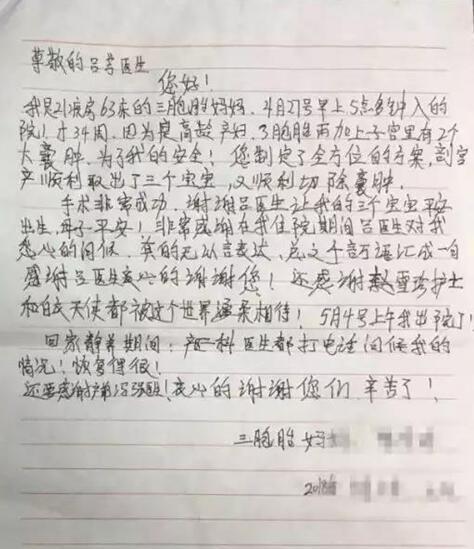 尊敬的吕芳医生
您好！
我是21床房63床的三胞胎妈妈，4月27号早上5点多钟入的
院！才34周，因为是高龄产妇，3胞胎再加上子宫里有2个
大囊肿，为了我的安全！您制定了全方位的方案，剖宫
产顺利取出了三个宝宝，又顺利切除囊肿，
手术非常成功，谢谢吕医生让我的三个宝宝平安
出生，母子平安！非常感谢在我住院期间吕医生对我
悉心的问候，真的无以言表达，总之千言万语汇成一句
感谢吕医生衷心的谢谢您！还感谢雪珍护士
和白衣天使都被这个世界温柔相待！5月4号上午我出院了！
回家静养期间，产一科医生都打电话问候我的
情况！恢复得很！
还要感谢产前！衷心的谢谢您们辛苦了！
三胞胎妈
2018